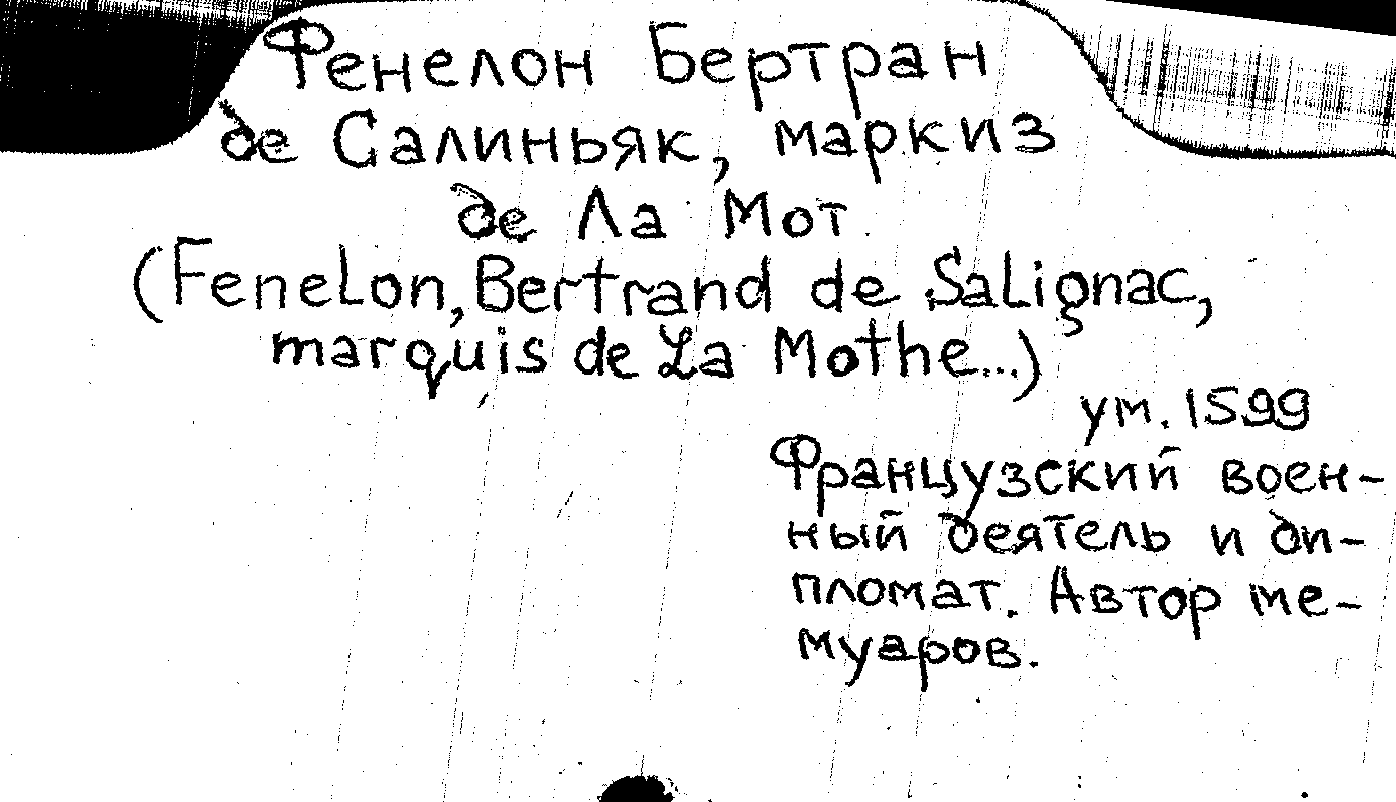 Фенелон Бертран
де Салиньяк, маркиз
де Ла Мот.
(Fenelon, Bertrand de Salignac,
marquis de La Mothe...)
ум. 1599
Французский воен-
ный деятель и ди-
пломат. Автор ме-
муаров.